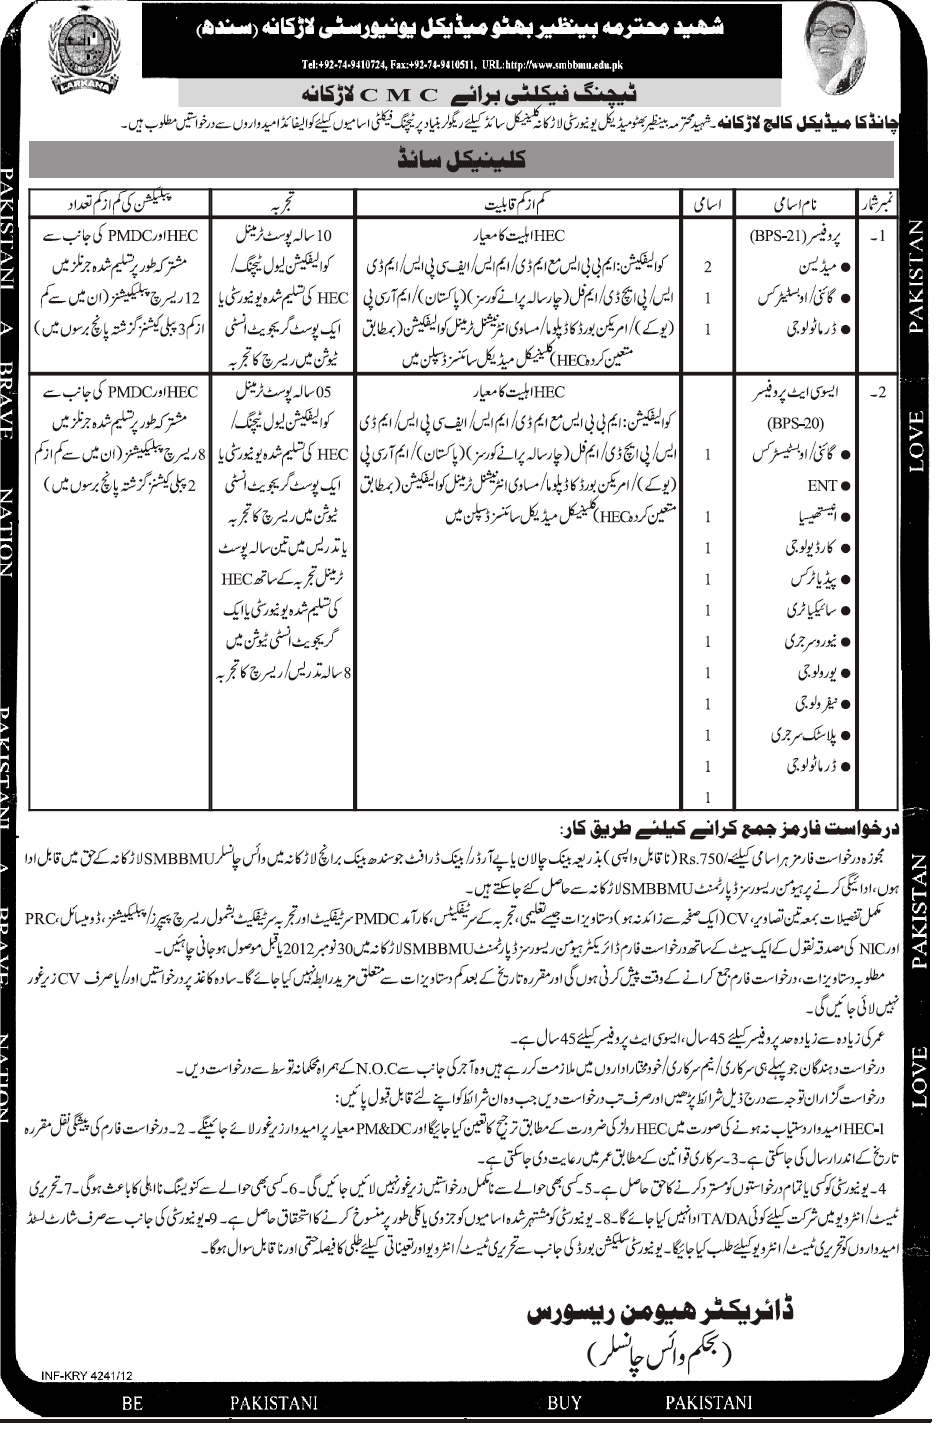 شهيد محترمه بينظير بهٹو ميڈيكل يونيورسٹی لاڑكانه (سندھ)
Tel:+92-74-9410724, Fax:+92-74-9410511, URL:http://www.smbbmu.edu.pk
LARKANA
ٹیچنگ فیکلٹی برائے CMC لاڑکانہ
چانڈکا میڈیکل کالج لاڑکانہ۔ شہید محترمہ بینظیر بھٹو میڈیکل یونیورسٹی لاڑکانہ کلینیکل سائڈ کیلئے ریگولر بنیاد پر ٹیچنگ فیکلٹی اسامیوں کیلئے کوالیفائڈ امیدواروں سے درخواستیں مطلوب ہیں۔
کلینیکل سائڈ
نمبر شمار
نام اسامی
اسامی
کم از کم قابلیت
تجربہ
پبلیکیشن کی کم از کم تعداد
1۔
پروفیسر (BPS-21)
● میڈیسن
● گائنی/اوبسٹیٹرکس
● ڈرماٹولوجی
2
1
1
HEC اہلیت کا معیار
کوالیفکیشن: ایم بی بی ایس مع ایم ڈی/ایم ایس/ایف سی پی ایس/ایم ڈی
ایس/پی ایچ ڈی/ایم فل (چار سالہ پرانے کورسز) (پاکستان)/ایم آر سی پی
(یو کے)/امریکن بورڈ کا ڈپلوما/مساوی انٹرنیشنل ٹرمینل کوالیفکیشن (بمطابق
متعین کردہ HEC) کلینیکل میڈیکل سائنسز ڈسپلن میں
10 سالہ پوسٹ ٹرمینل
کوالیفکیشن لیول ٹیچنگ/
HEC کی تسلیم شدہ یونیورسٹی یا
ایک پوسٹ گریجویٹ انسٹی
ٹیوشن میں ریسرچ کا تجربہ
HEC اور PMDC کی جانب سے
مشترکہ طور پر تسلیم شدہ جرنلز میں
12 ریسرچ پبلیکیشنز (ان میں سے کم
از کم 3 پبلی کیشنز گزشتہ پانچ برسوں میں)
2۔
ایسوسی ایٹ پروفیسر
(BPS-20)
● گائنی/اوبسٹیٹرکس
● ENT
● انیستھیسیا
● کارڈیولوجی
● پیڈیاٹرکس
● سائیکیاٹری
● نیوروسرجری
● یورولوجی
● نیفرولوجی
● پلاسٹک سرجری
● ڈرماٹولوجی
1
1
1
1
1
1
1
1
1
1
1
HEC اہلیت کا معیار
کوالیفکیشن: ایم بی بی ایس مع ایم ڈی/ایم ایس/ایف سی پی ایس/ایم ڈی
ایس/پی ایچ ڈی/ایم فل (چار سالہ پرانے کورسز) (پاکستان)/ایم آر سی پی
(یو کے)/امریکن بورڈ کا ڈپلوما/مساوی انٹرنیشنل ٹرمینل کوالیفکیشن (بمطابق
متعین کردہ HEC) کلینیکل میڈیکل سائنسز ڈسپلن میں
05 سالہ پوسٹ ٹرمینل
کوالیفکیشن لیول ٹیچنگ/
HEC کی تسلیم شدہ یونیورسٹی یا
ایک پوسٹ گریجویٹ انسٹی
ٹیوشن میں ریسرچ کا تجربہ
یا تدریس میں تین سالہ پوسٹ
ٹرمینل تجربہ کے ساتھ HEC
کی تسلیم شدہ یونیورسٹی یا ایک
گریجویٹ انسٹی ٹیوشن میں
8 سالہ تدریس/ریسرچ کا تجربہ
HEC اور PMDC کی جانب سے
مشترکہ طور پر تسلیم شدہ جرنلز میں
8 ریسرچ پبلیکیشنز (ان میں سے کم از کم
2 پبلی کیشنز گزشتہ پانچ برسوں میں)
درخواست فارمز جمع کرانے کیلئے طریق کار:
مجوزہ درخواست فارمز ہر اسامی کیلئے Rs.750/- (ناقابل واپسی) بذریعہ بینک چالان یا پے آرڈر/بینک ڈرافٹ جو سندھ بینک برانچ لاڑکانہ میں وائس چانسلر SMBBMU لاڑکانہ کے حق میں قابل ادا
ہوں، ادائیگی کرنے پر ہیومن ریسورسز ڈپارٹمنٹ SMBBMU لاڑکانہ سے حاصل کئے جاسکتے ہیں۔
مکمل تفصیلات بمعہ تین تصاویر، CV (ایک صفحے سے زائد نہ ہو) دستاویزات جیسے تعلیمی، تجربہ کے سرٹیفکیٹس، کارآمد PMDC سرٹیفکیٹ اور تجربہ سرٹیفکیٹ بشمول ریسرچ پیپرز/پبلیکیشنز، ڈومیسائل، PRC
اور NIC کی مصدقہ نقول کے ایک سیٹ کے ساتھ درخواست فارم ڈائریکٹر ہیومن ریسورسز ڈپارٹمنٹ SMBBMU لاڑکانہ میں 30 نومبر 2012 یا قبل موصول ہوجانی چاہئیں۔
مطلوبہ دستاویزات، درخواست فارم جمع کرانے کے وقت پیش کرنی ہوں گی اور مقررہ تاریخ کے بعد کم دستاویزات سے متعلق مزید رابطہ نہیں کیا جائے گا۔ سادہ کاغذ پر درخواستیں اور/یا صرف CV زیر غور
نہیں لائی جائیں گی۔
عمر کی زیادہ سے زیادہ حد پروفیسر کیلئے 45 سال، ایسوسی ایٹ پروفیسر کیلئے 45 سال ہے۔
درخواست دہندگان جو پہلے ہی سرکاری/نیم سرکاری/خودمختار اداروں میں ملازمت کررہے ہیں وہ آجر کی جانب سے N.O.C کے ہمراہ محکمانہ توسط سے درخواست دیں۔
درخواست گزاران توجہ سے درج ذیل شرائط پڑھیں اور صرف تب درخواست دیں جب وہ ان شرائط کو اپنے لئے قابل قبول پائیں:
1-HEC امیدوار دستیاب نہ ہونے کی صورت میں HEC رولز کی ضرورت کے مطابق ترجیح کا تعین کیا جائیگا اور PM&DC معیار پر امیدوار زیر غور لائے جائینگے۔ 2۔ درخواست فارم کی پیشگی نقل مقررہ
تاریخ کے اندر ارسال کی جاسکتی ہے۔ 3۔ سرکاری قوانین کے مطابق عمر میں رعایت دی جاسکتی ہے۔
4۔ یونیورسٹی کو کسی یا تمام درخواستوں کو مسترد کرنے کا حق حاصل ہے۔ 5۔ کسی بھی حوالے سے نامکمل درخواستیں زیر غور نہیں لائیں جائیں گی۔ 6۔ کسی بھی حوالے سے کنویسنگ نااہلی کا باعث ہوگی۔ 7۔ تحریری
ٹیسٹ/انٹرویو میں شرکت کیلئے کوئی TA/DA ادا نہیں کیا جائے گا۔ 8۔ یونیورسٹی کو مشتہر شدہ اسامیوں کو جزوی یا کلی طور پر منسوخ کرنے کا استحقاق حاصل ہے۔ 9۔ یونیورسٹی کی جانب سے صرف شارٹ لسٹڈ
امیدواروں کو تحریری ٹیسٹ/انٹرویو کیلئے طلب کیا جائیگا۔ یونیورسٹی سلیکشن بورڈ کی جانب سے تحریری ٹیسٹ/انٹرویو اور تعیناتی کیلئے طلبی کا فیصلہ حتمی اور ناقابل سوال ہوگا۔
ڈائریکٹر ھیومن ریسورس
(بحکم وائس چانسلر)
INF-KRY 4241/12
PAKISTANI A BRAVE NATION
PAKISTANI A BRAVE NATION
LOVE PAKISTAN
LOVE PAKISTAN
BE PAKISTANI BUY PAKISTANI